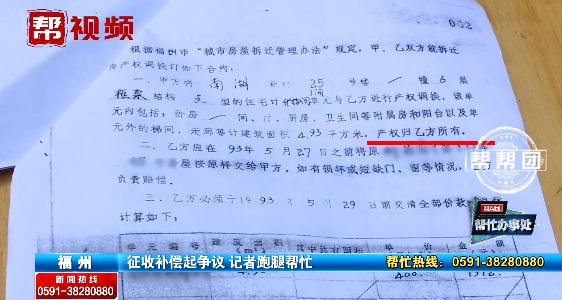 帮视频
002
根据福州市“城市房屋拆迁管理办法”规定，甲、乙双方就拆迁
房产权调换订如下合约：
一、甲方将 南湖 25 号楼 一 幢 6 层
框架 结构 型的住宅计 1间 单元与乙方进行产权调换，该单
元内包括：卧房 一 间、厅、厨房、卫生间等附属房和阳台以及单
元外的梯间、走廊等计建筑面积 4.93 平方米，产权归乙方所有。
二、乙方应在 93年 5月27日之前将原
屋按原样交给甲方，如有损坏或短缺门、窗等情况，
负责赔偿。
三、乙方必须于1993年 5月29日前交清全部价款
计算如下：
帮帮团
帮忙办事处
福州
征收补偿起争议 记者跑腿帮忙
帮忙热线：0591-38280880
新闻热线
0591-38280880